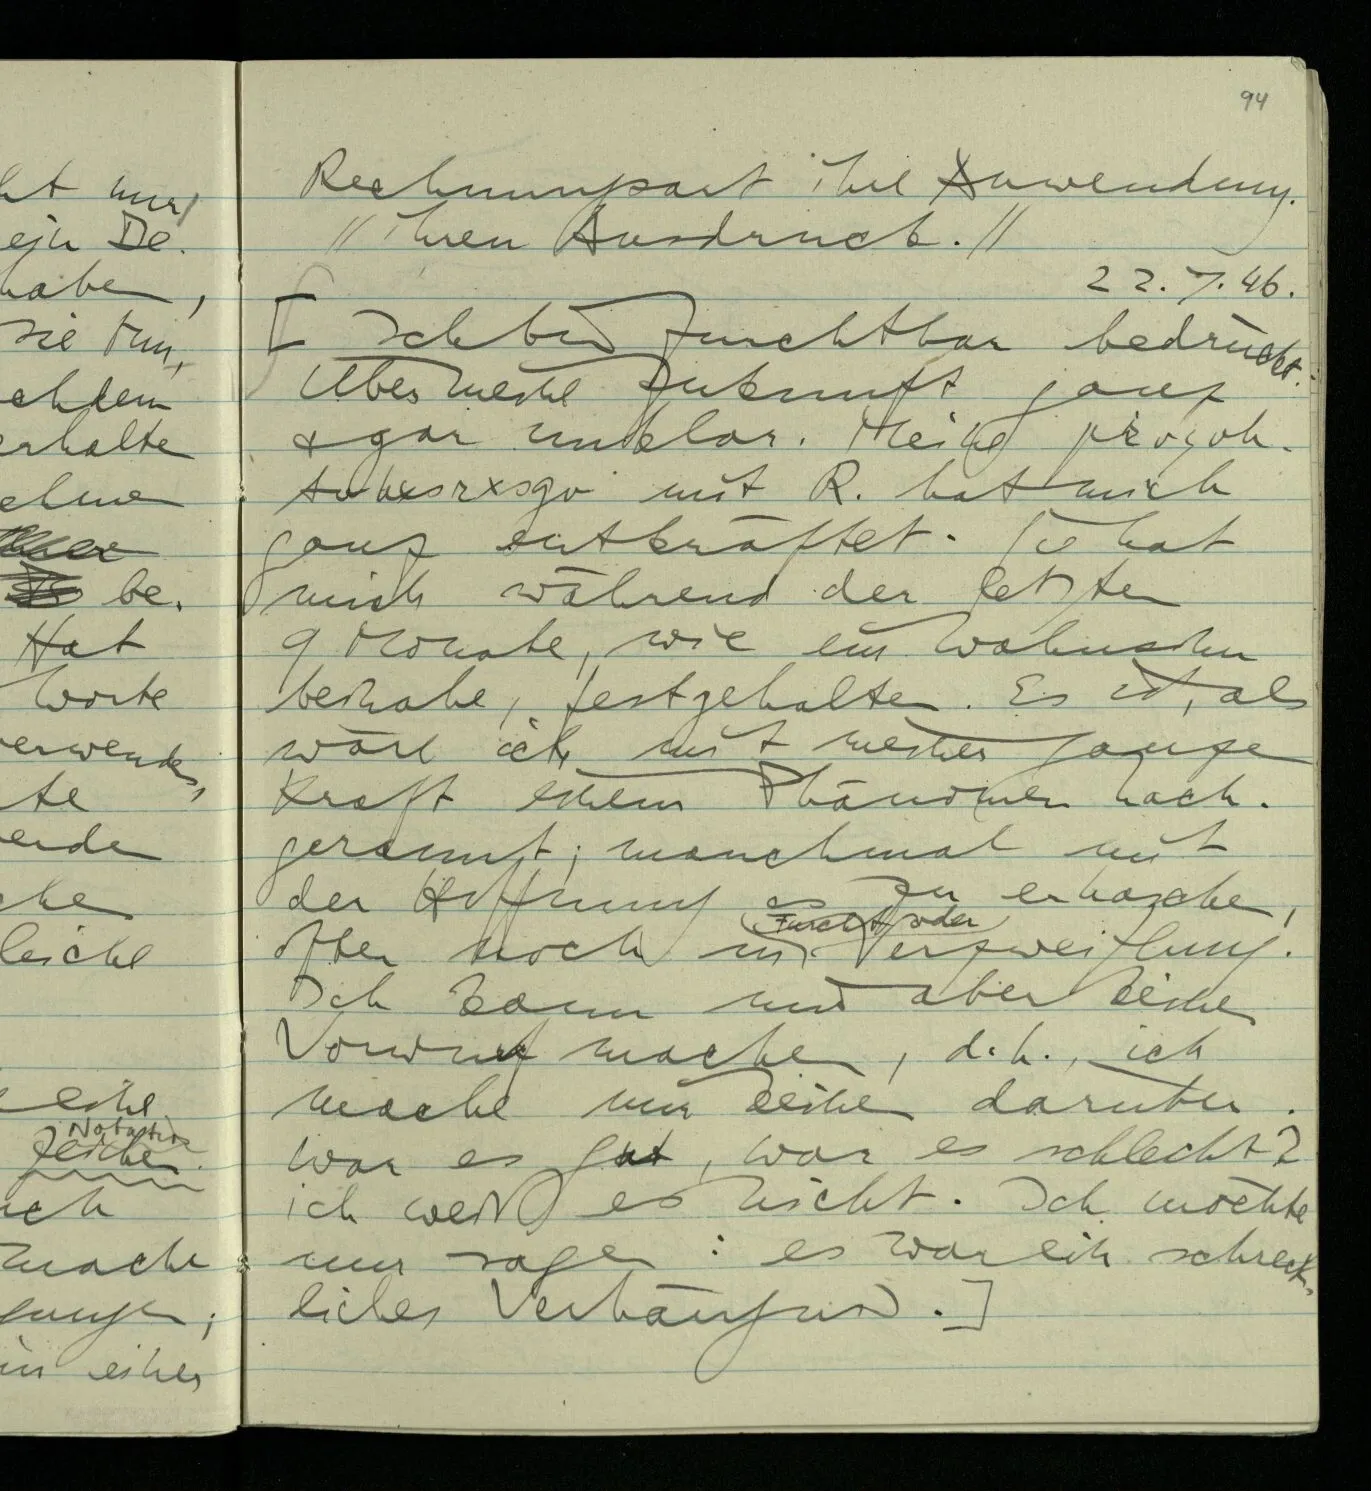 ht nur
ein De-
haben,
sie nun,
chdem
erhalte
ehme
be-
Hat
Worte
verwenden,
te
ende
che
leiche
eine
Notation
Zeichen.
ach
mache
gungen;
in einer
94
Rechnungsart ihre Anwendung.
// ihren Ausdruck. //
22.7.46.
[Ich bin furchtbar bedrückt.
Über meine Zukunft ganz
& gar unklar. Meine orvyvh-
tvhxsrxsgv mit R. hat mich
ganz entkräftet. Sie hat
mich während der letzten
9 Monate, wie ein Wahnsinn
beinahe, festgehalten. Es ist, als
wäre ich mit meiner ganze
Kraft einem Phänomen nach-
gerannt; manchmal mit
der Hoffnung es zu erhaschen,
Furcht oder
öfter noch in Verzweiflung.
Ich kann mir aber keinen
Vorwurf machen, d.h., ich
mache mir keinen darüber.
War es gut, war es schlecht?
ich weiß es nicht. Ich möchte
nur sagen: es war ein schreck-
liches Verhängnis.]